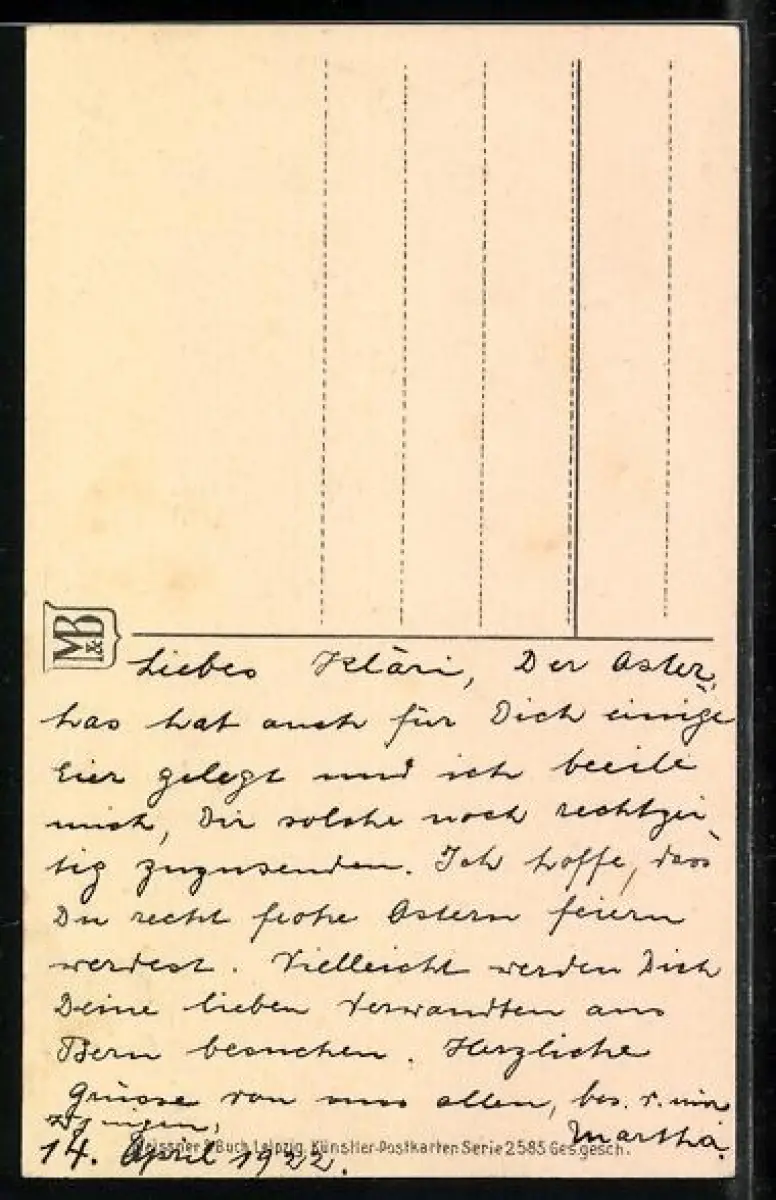 M&B
Liebes Kläri, Der Oster-
has hat auch für Dich einige
Eier gelegt und ich beeile
mich, Dir solche noch rechtzei-
tig zuzusenden. Ich hoffe, dass
Du recht frohe Ostern feiern
werdest. Vielleicht werden Dich
Deine lieben Verwandten aus
Bern besuchen. Herzliche
Grüsse von uns allen, bes. v. mir
Martha.
14. April 1922.
Meissner & Buch Leipzig Künstler-Postkarten Serie 2585 Ges.gesch.